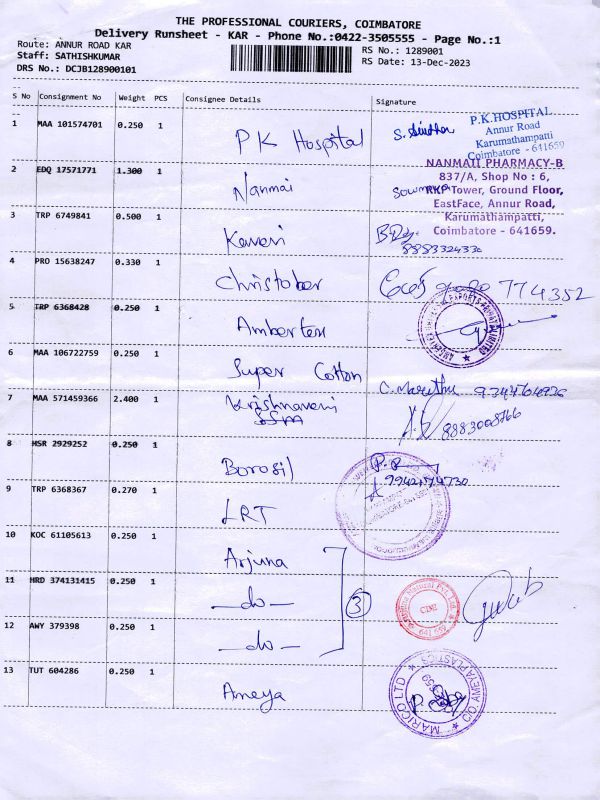 THE PROFESSIONAL COURIERS, COIMBATORE
Delivery Runsheet - KAR - Phone No.:0422-3505555 - Page No.:1
Route: ANNUR ROAD KAR
RS No.: 1289001
Staff: SATHISHKUMAR
RS Date: 13-Dec-2023
DRS No.: DCJB128900101
S No Consignment No Weight PCS Consignee Details Signature
1 MAA 101574701 0.250 1 PK Hospital
P.K.HOSPITAL
Annur Road
Karumathampatti
Coimbatore - 641659
2 EDQ 17571771 1.300 1 Nanmai
NANMAI PHARMACY-B
837/A, Shop No : 6,
RKP Tower, Ground Floor,
EastFace, Annur Road,
Karumathampatti,
Coimbatore - 641659.
3 TRP 6749841 0.500 1 Kaveri
4 PRO 15638247 0.330 1 Christober
774352
5 TRP 6368428 0.250 1
6 MAA 106722759 0.250 1 Super Cotton
7 MAA 571459366 2.400 1 Krishnaveni
SSM
8883008766
8 HSR 2929252 0.250 1 Borosil
9 TRP 6368367 0.270 1 LRT
10 KOC 61105613 0.250 1 Arjuna
11 HRD 374131415 0.250 1 -do-
3
12 AWY 379398 0.250 1 -do-
13 TUT 604286 0.250 1 Ameya
MARICO LTD
C/O. AMEYA PLASTICS